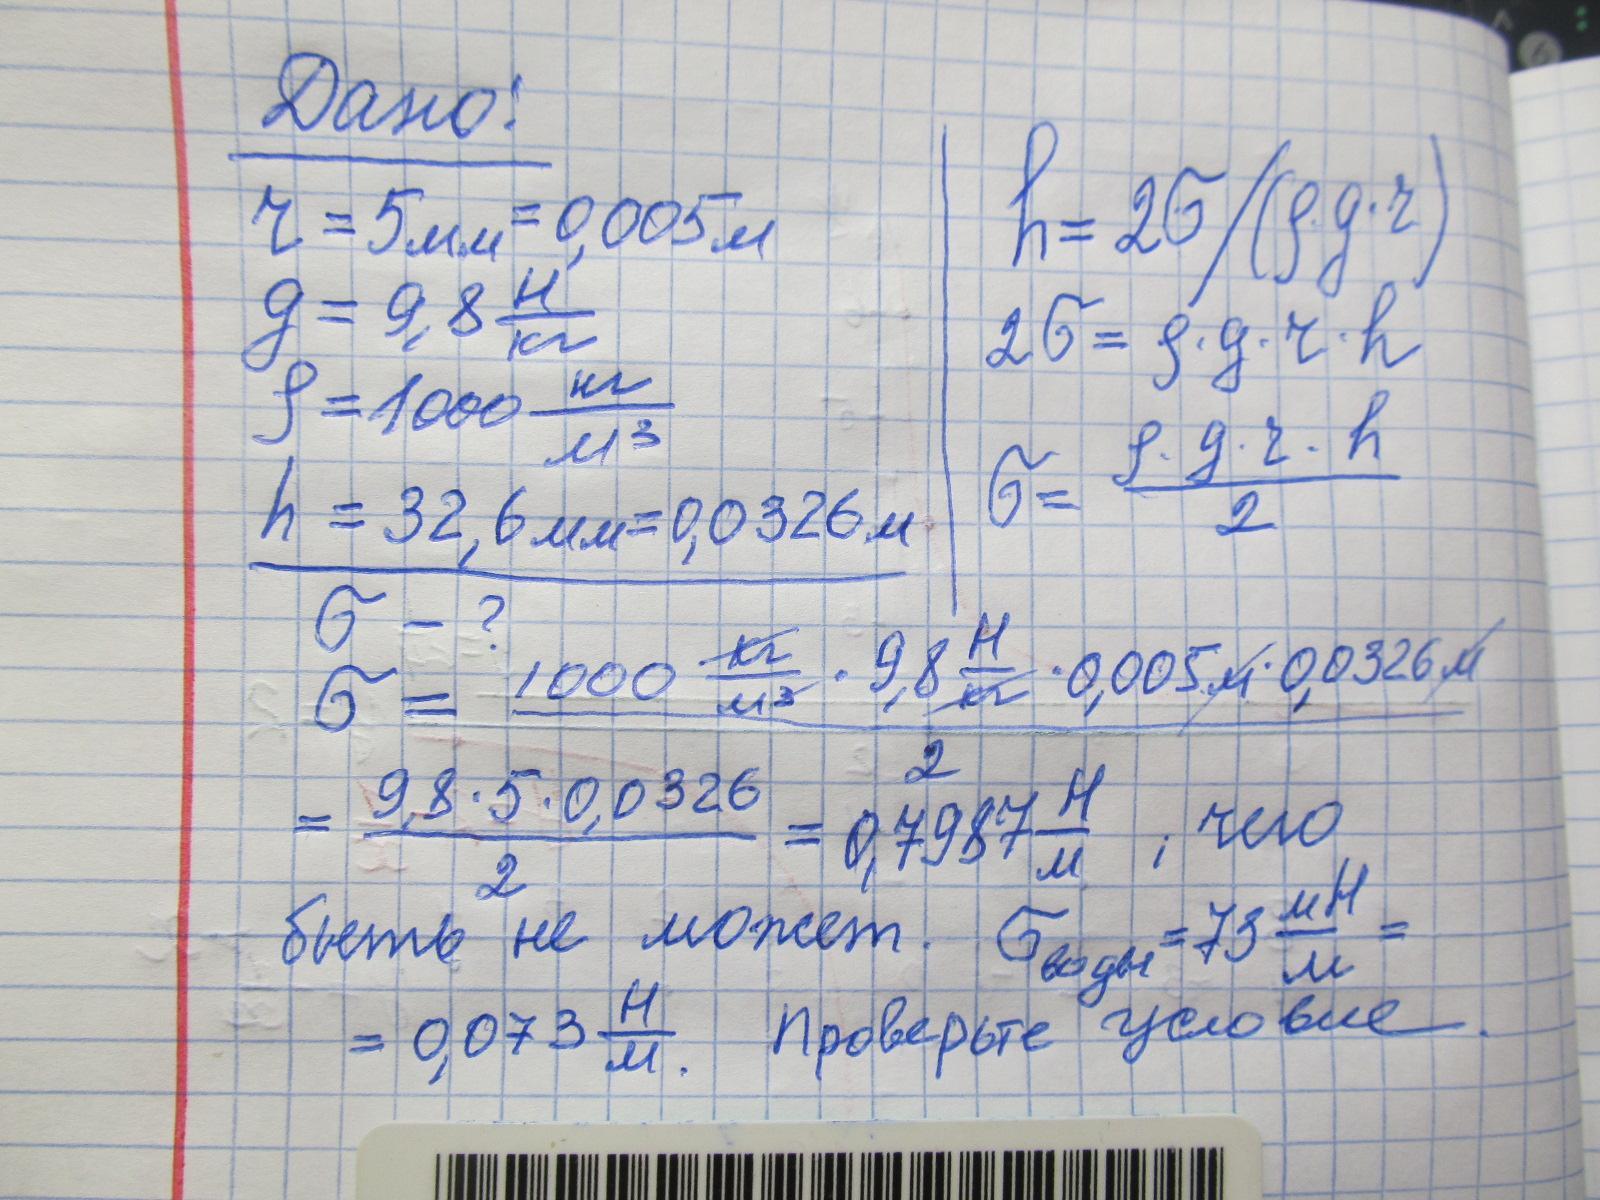 Дано:
r = 5мм = 0,005м
g = 9,8 Н/кг
ρ = 1000 кг/м³
h = 32,6мм = 0,0326м
σ – ?
h = 2σ/(ρ·g·r)
2σ = ρ·g·r·h
σ = ρ·g·r·h / 2
σ = 1000 кг/м³ · 9,8 Н/кг · 0,005м · 0,0326м / 2
= 9,8·5·0,0326 / 2 = 0,7987 Н/м , чего
быть не может. σводы = 73 мН/м =
= 0,073 Н/м. Проверьте условие.